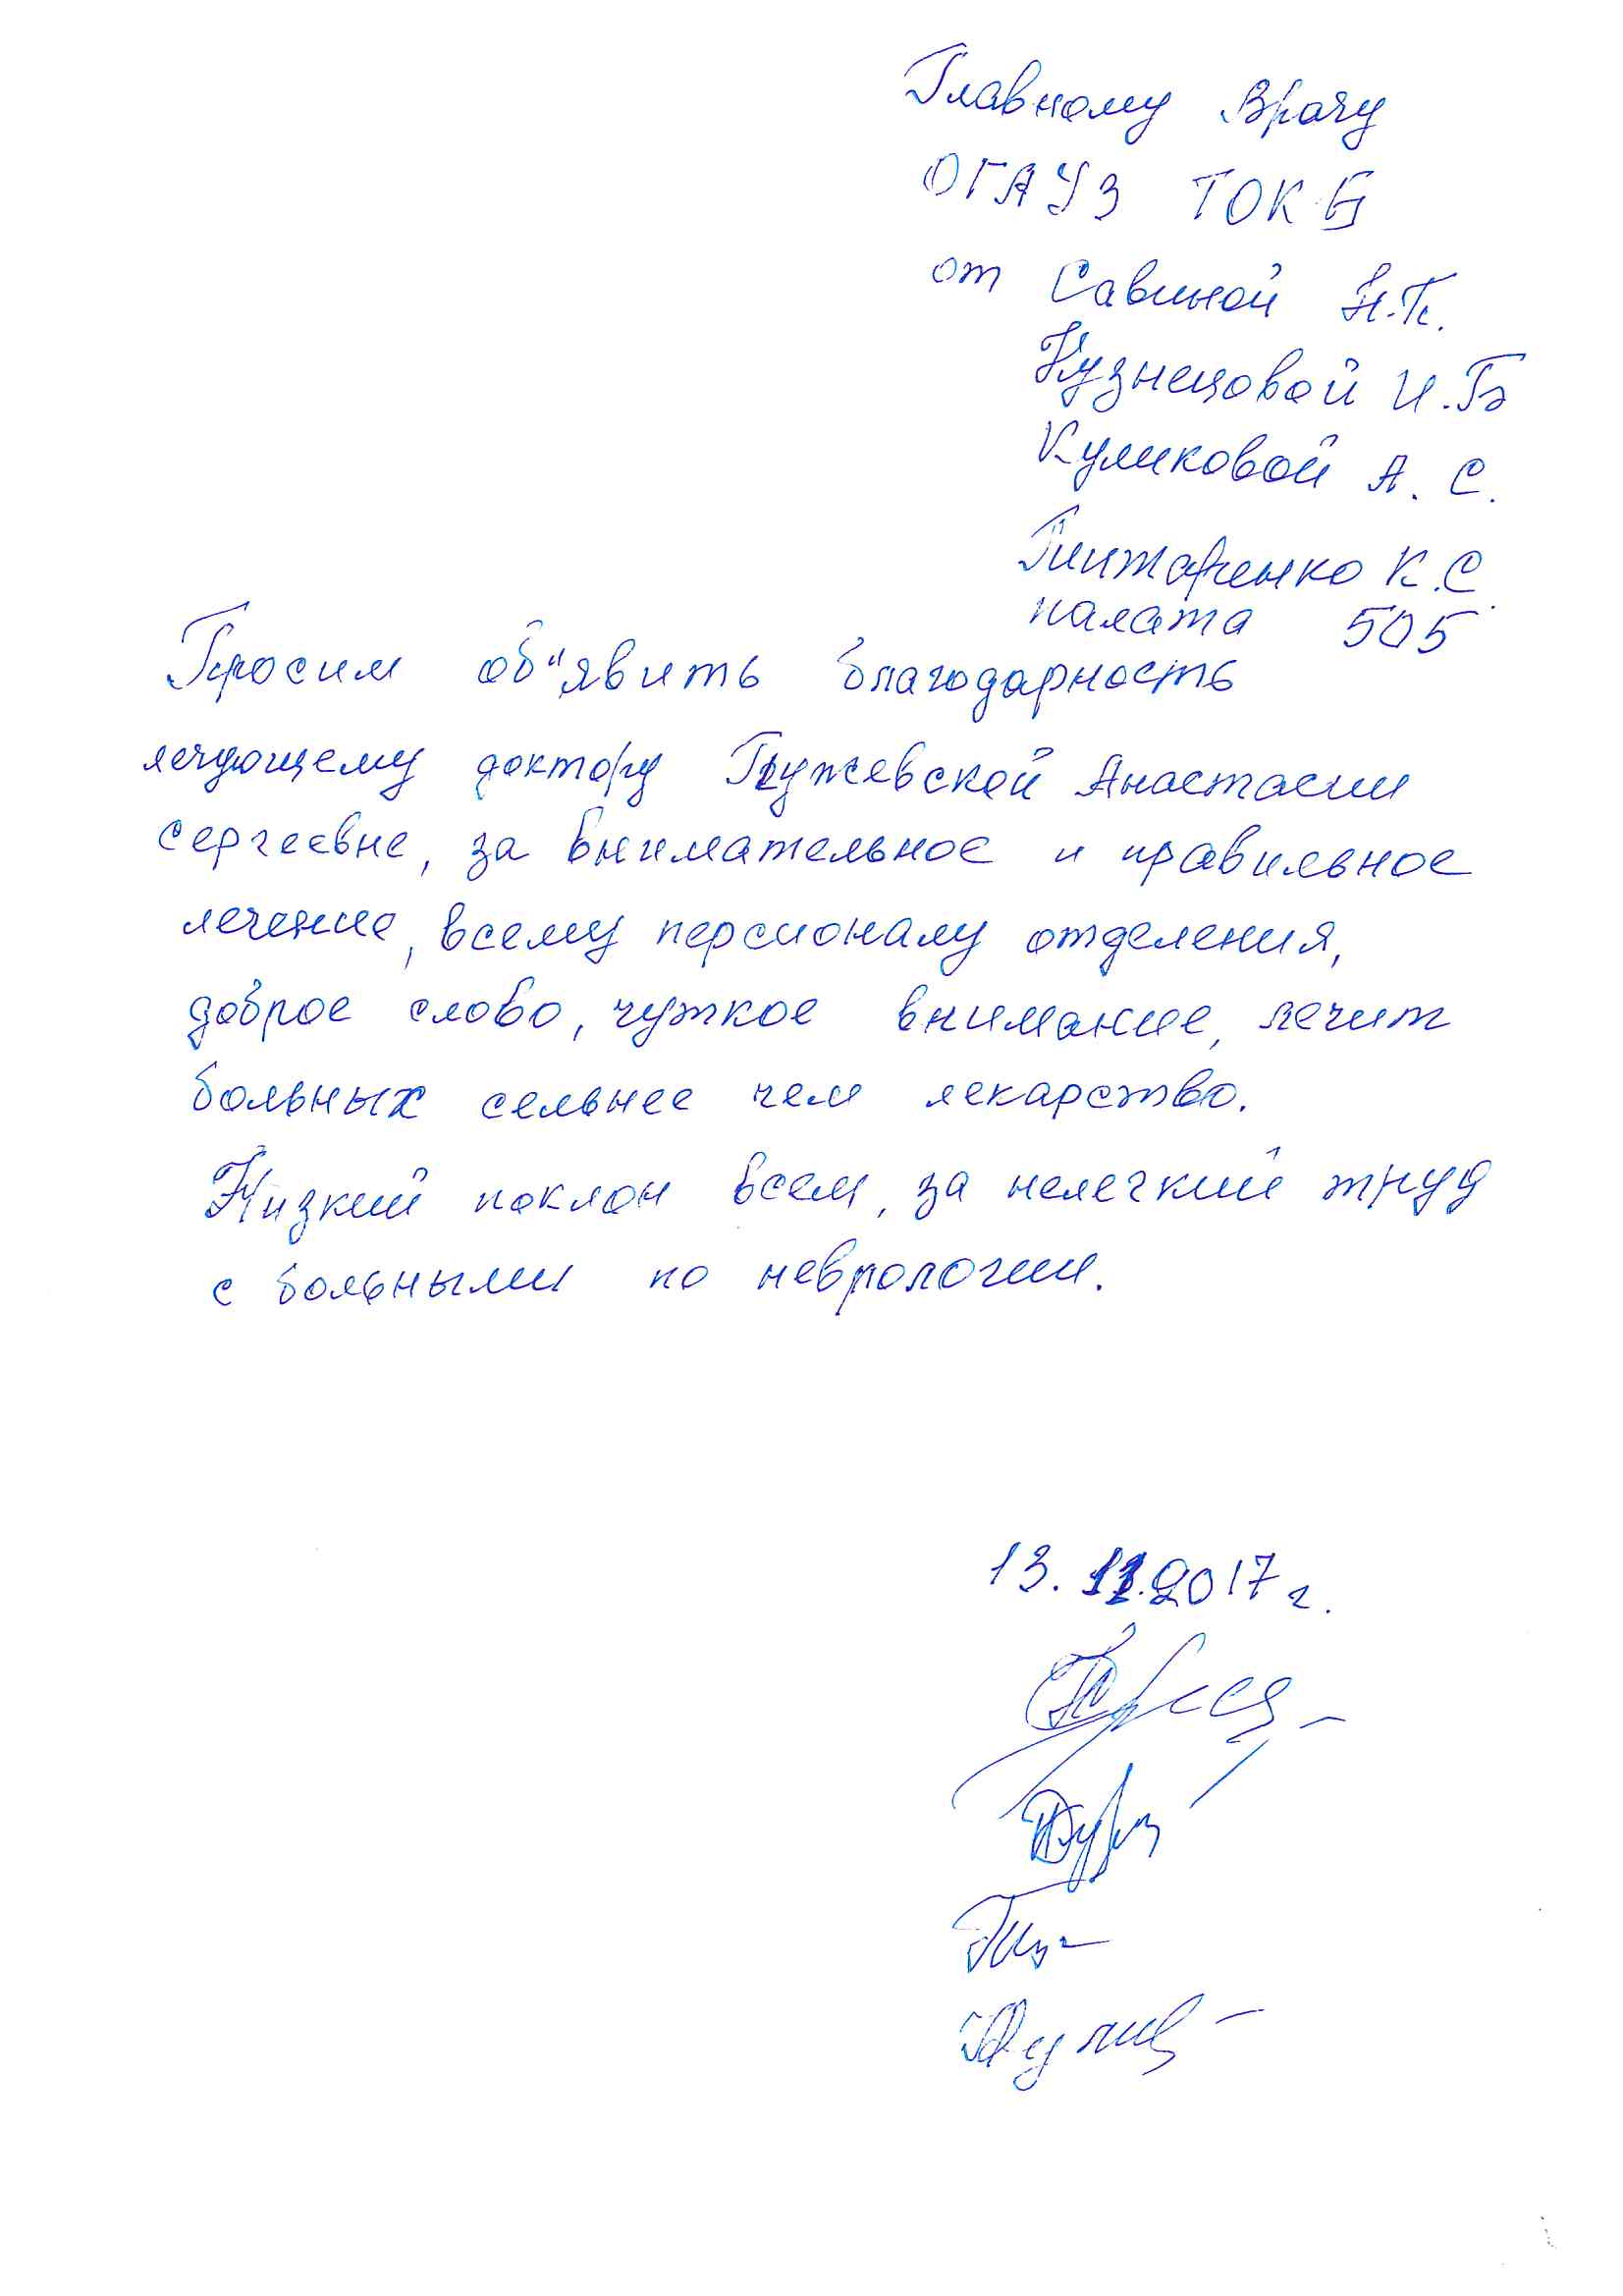 Главному врачу
ОГАУЗ ТОКБ
от Савиной Н.П.
Кузнецовой И.Б
Куликовой А. С.
К.С.
палата 505
Просим об"явить благодарность
лечующему доктору Анастасии
Сергеевне, за внимательное и правильное
лечение, всему персионалу отделения,
доброе слово, чуткое внимание, лечит
больных сельнее чем лекарство.
Низкий поклон всем, за нелегкий труд
с больными по неврологии.
13. 11.2017 г.